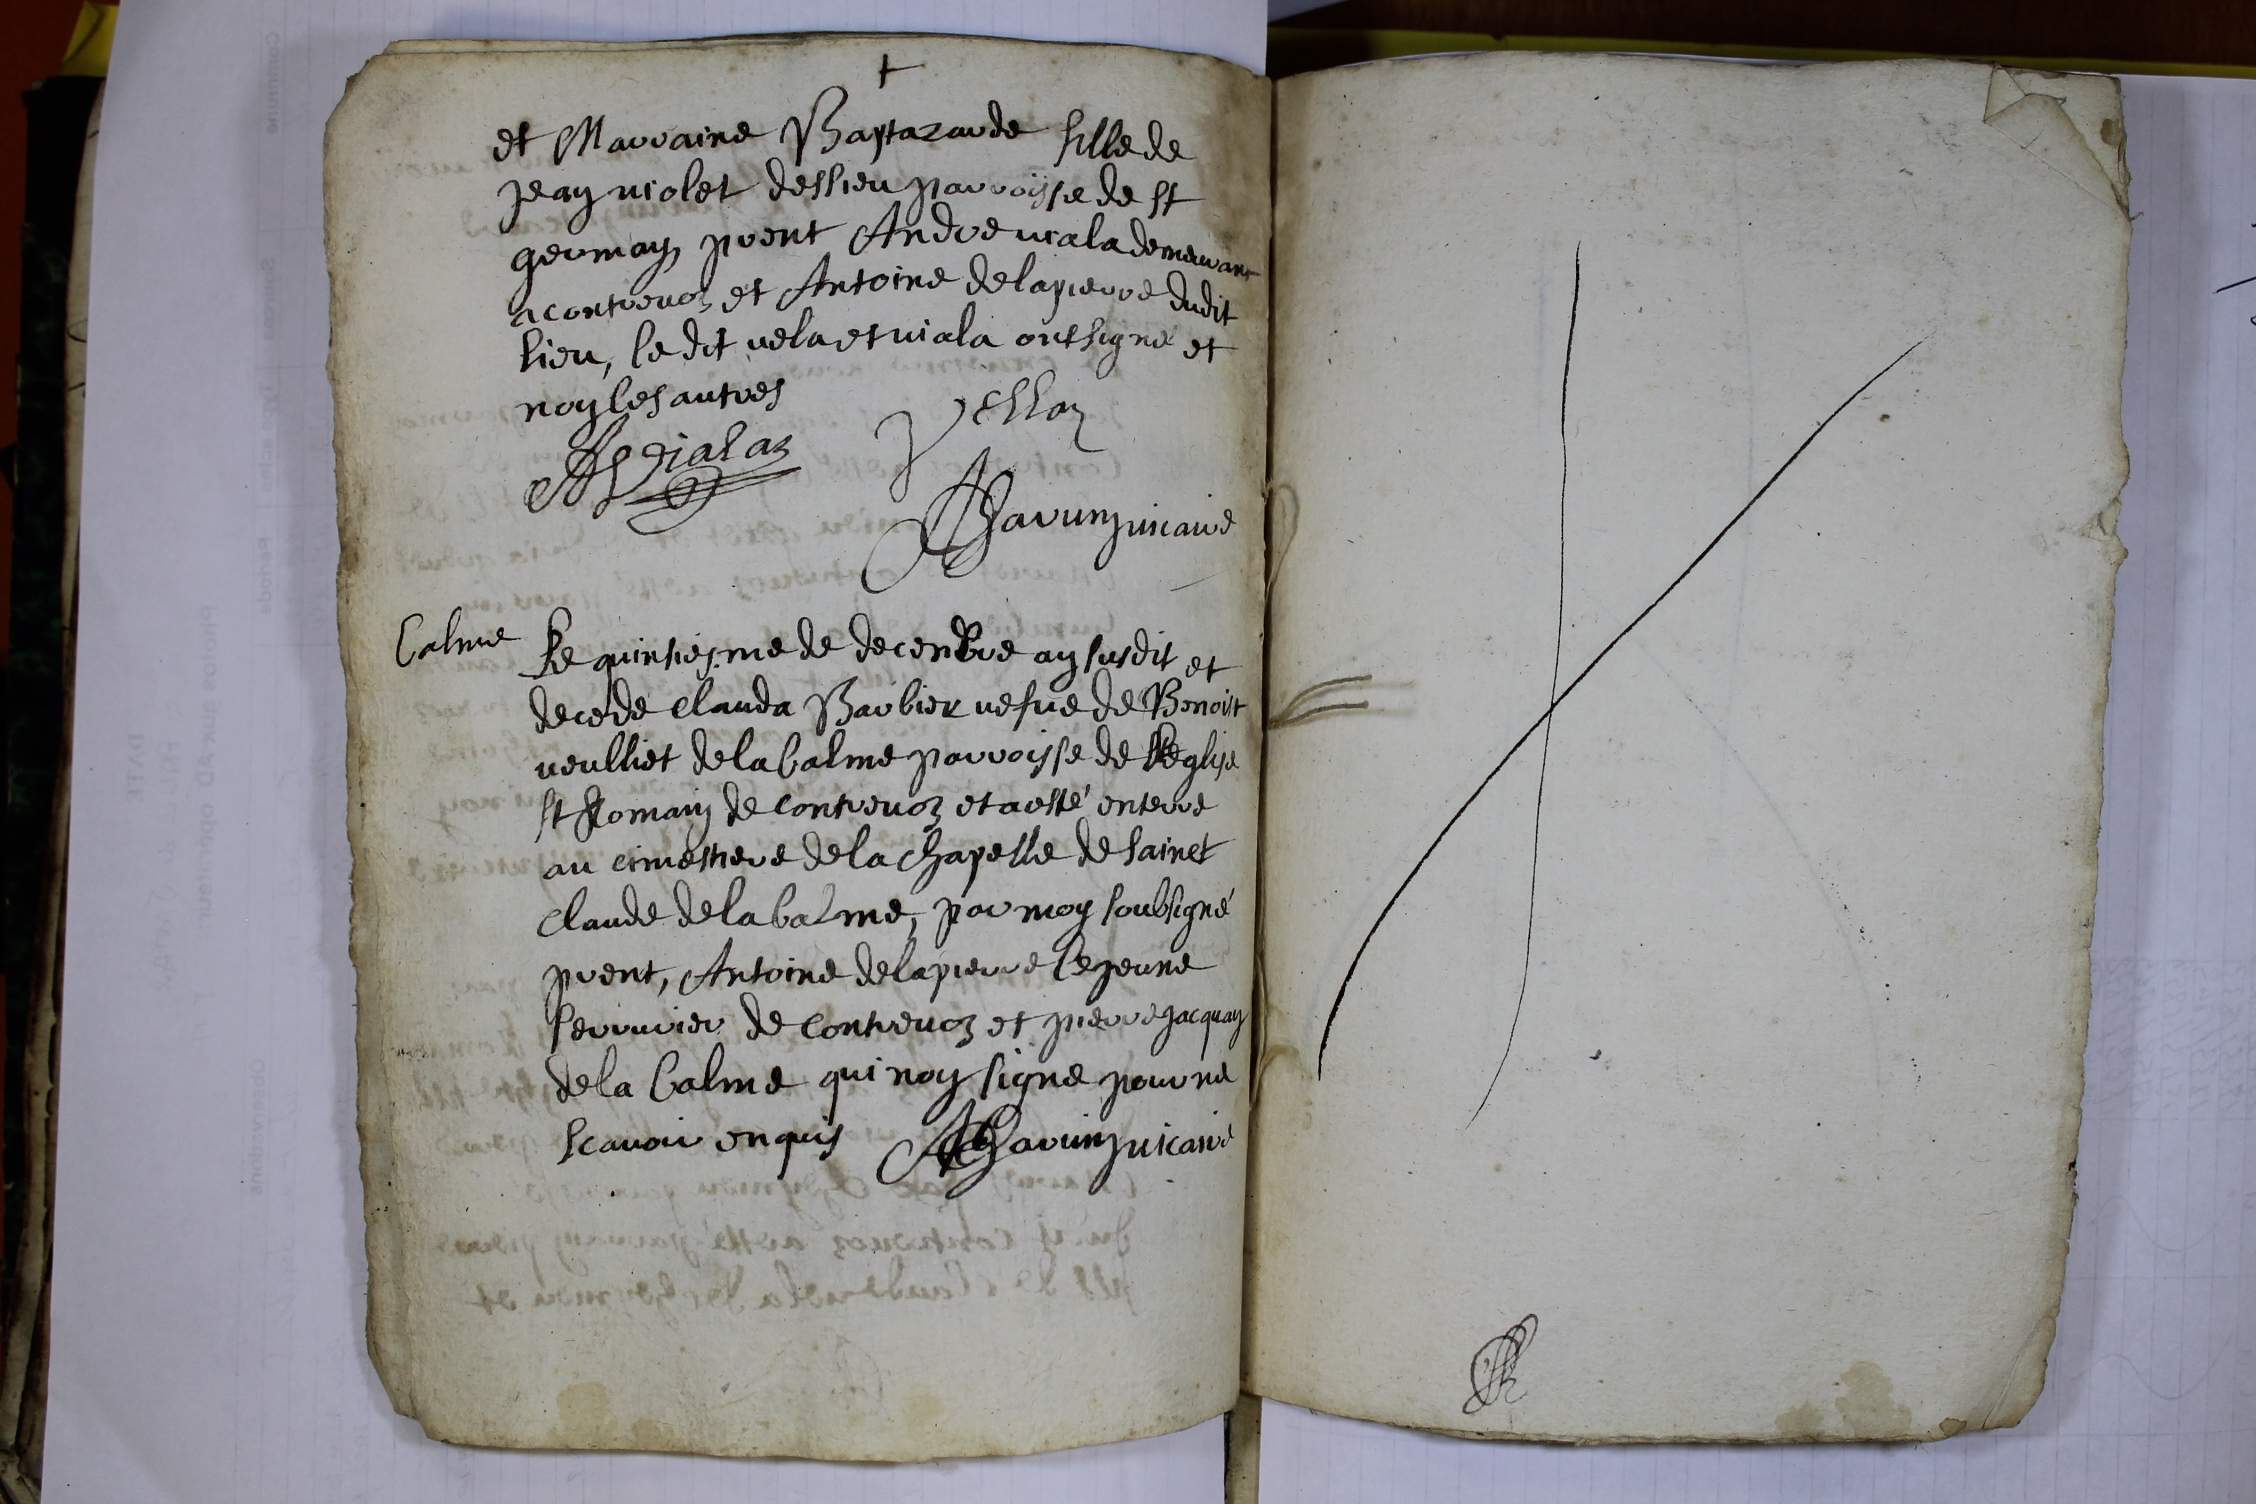 et Marraine Baptazarde fille de
jean violet dessieu parroisse de st
germain pnt Andre viala demeurant
a contrevoz et Antoine delapierre dudit
lieu, le dit vela et viala ont signé et
non les autres
A Vialaz
Vellaz
vicaire
Balme
Le quinsiesme de decembre an susdit et
decede Clauda Barbier vefve de Benoist
veulliet de la balme parroisse de leglise
st Romain de contrevoz et a esté enterre
au cimestiere de la chapelle de sainct
Claude de la balme, par moy soubsigné
pnt, Antoine delapierre le jeune
serrurier de contrevoz et pierre jacquan
de la balme qui non signe pour ne
scavoir enquis
vicaire